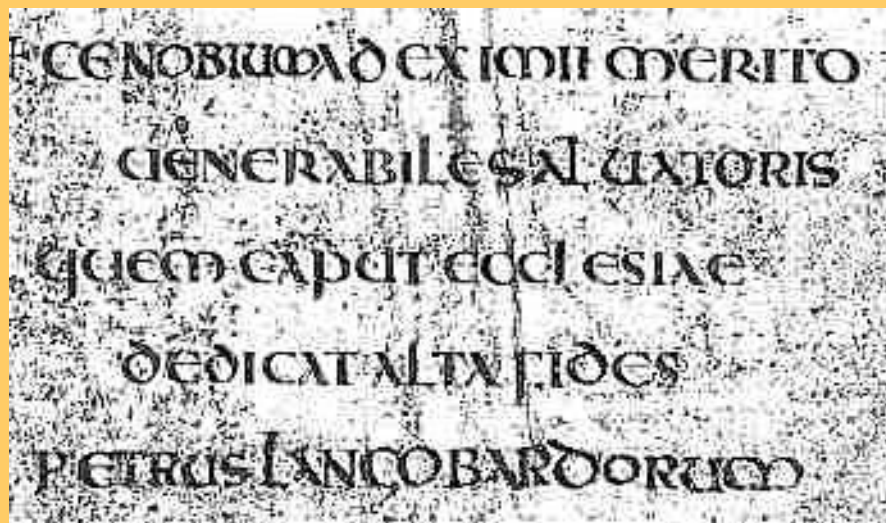 + CENOBIUM AD EXIMII MERITO
UENERABILE SALUATORIS
QUEM CAPUT ECCLESIAE
DEDICAT ALTA FIDES
PETRUS LANGOBARDORUM